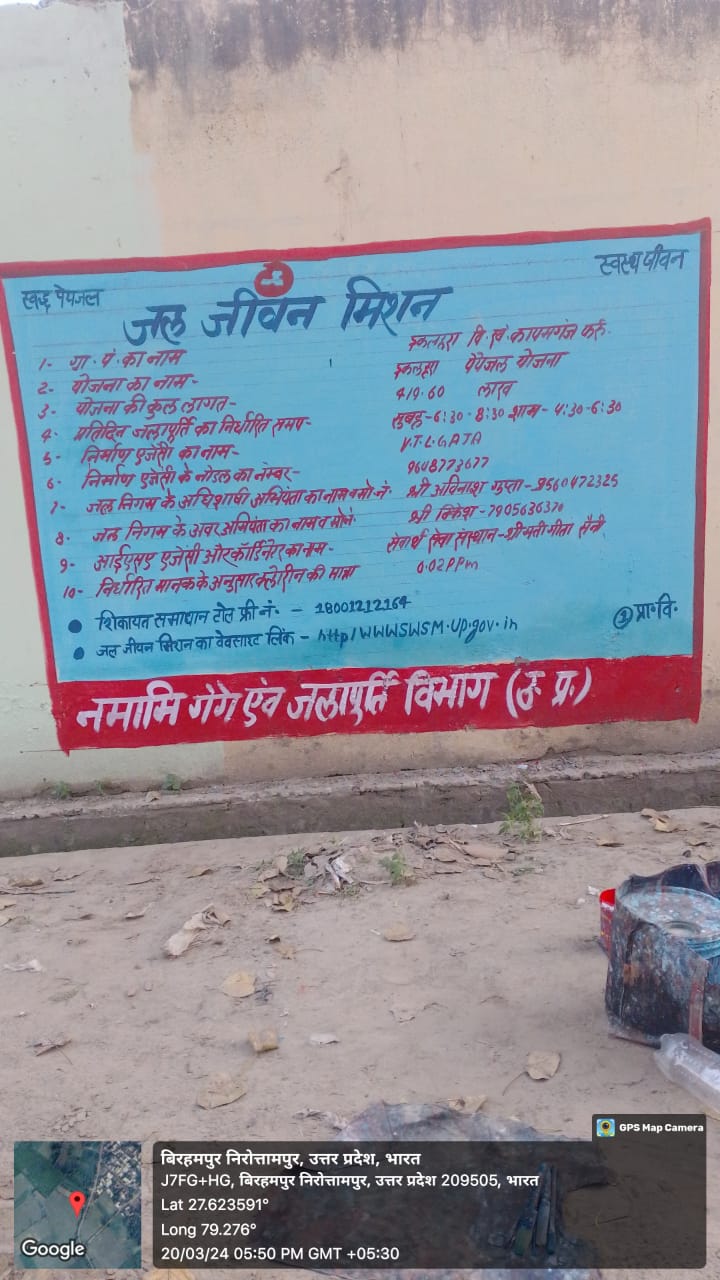 स्वच्छ पेयजल
स्वस्थ जीवन
जल जीवन मिशन
1- ग्रा. पं. का नाम इकलहरा वि. खं. कायमगंज फर्रु.
2- योजना का नाम- इकलहरा पेयजल योजना
3- योजना की कुल लागत- 419.60 लाख
4- प्रतिदिन जलापूर्ति का निर्धारित समय- सुबह-6:30-8:30 शाम-4:30-6:30
5- निर्माण एजेंसी का नाम- V.T.L.G.A.J.A
6- निर्माण एजेंसी के नोडल का नम्बर- 9648773677
7- जल निगम के अधिशाषी अभियंता का नाम व मो. नं. श्री अविनाश गुप्ता-9560472325
8- जल निगम के अवर अभियंता का नाम व मो.नं. श्री विकेश-7905636370
9- आईएसए एजेंसी और कॉर्डिनेटर का नाम- सेवार्थ सेवा संस्थान-श्रीमती गीता सैनी
10- निर्धारित मानक के अनुसार क्लोरीन की मात्रा 0.02PPm
शिकायत समाधान टोल फ्री नं. - 18001212164
जल जीवन मिशन का वेवसाइट लिंक - http/WWWSWSM.UP.gov.in
① प्रा.वि.
नमामि गंगे एंव जलापूर्ति विभाग (उ. प्र.)
GPS Map Camera
बिरहमपुर निरोत्तामपुर, उत्तर प्रदेश, भारत
J7FG+HG, बिरहमपुर निरोत्तामपुर, उत्तर प्रदेश 209505, भारत
Lat 27.623591°
Long 79.276°
20/03/24 05:50 PM GMT +05:30
Google